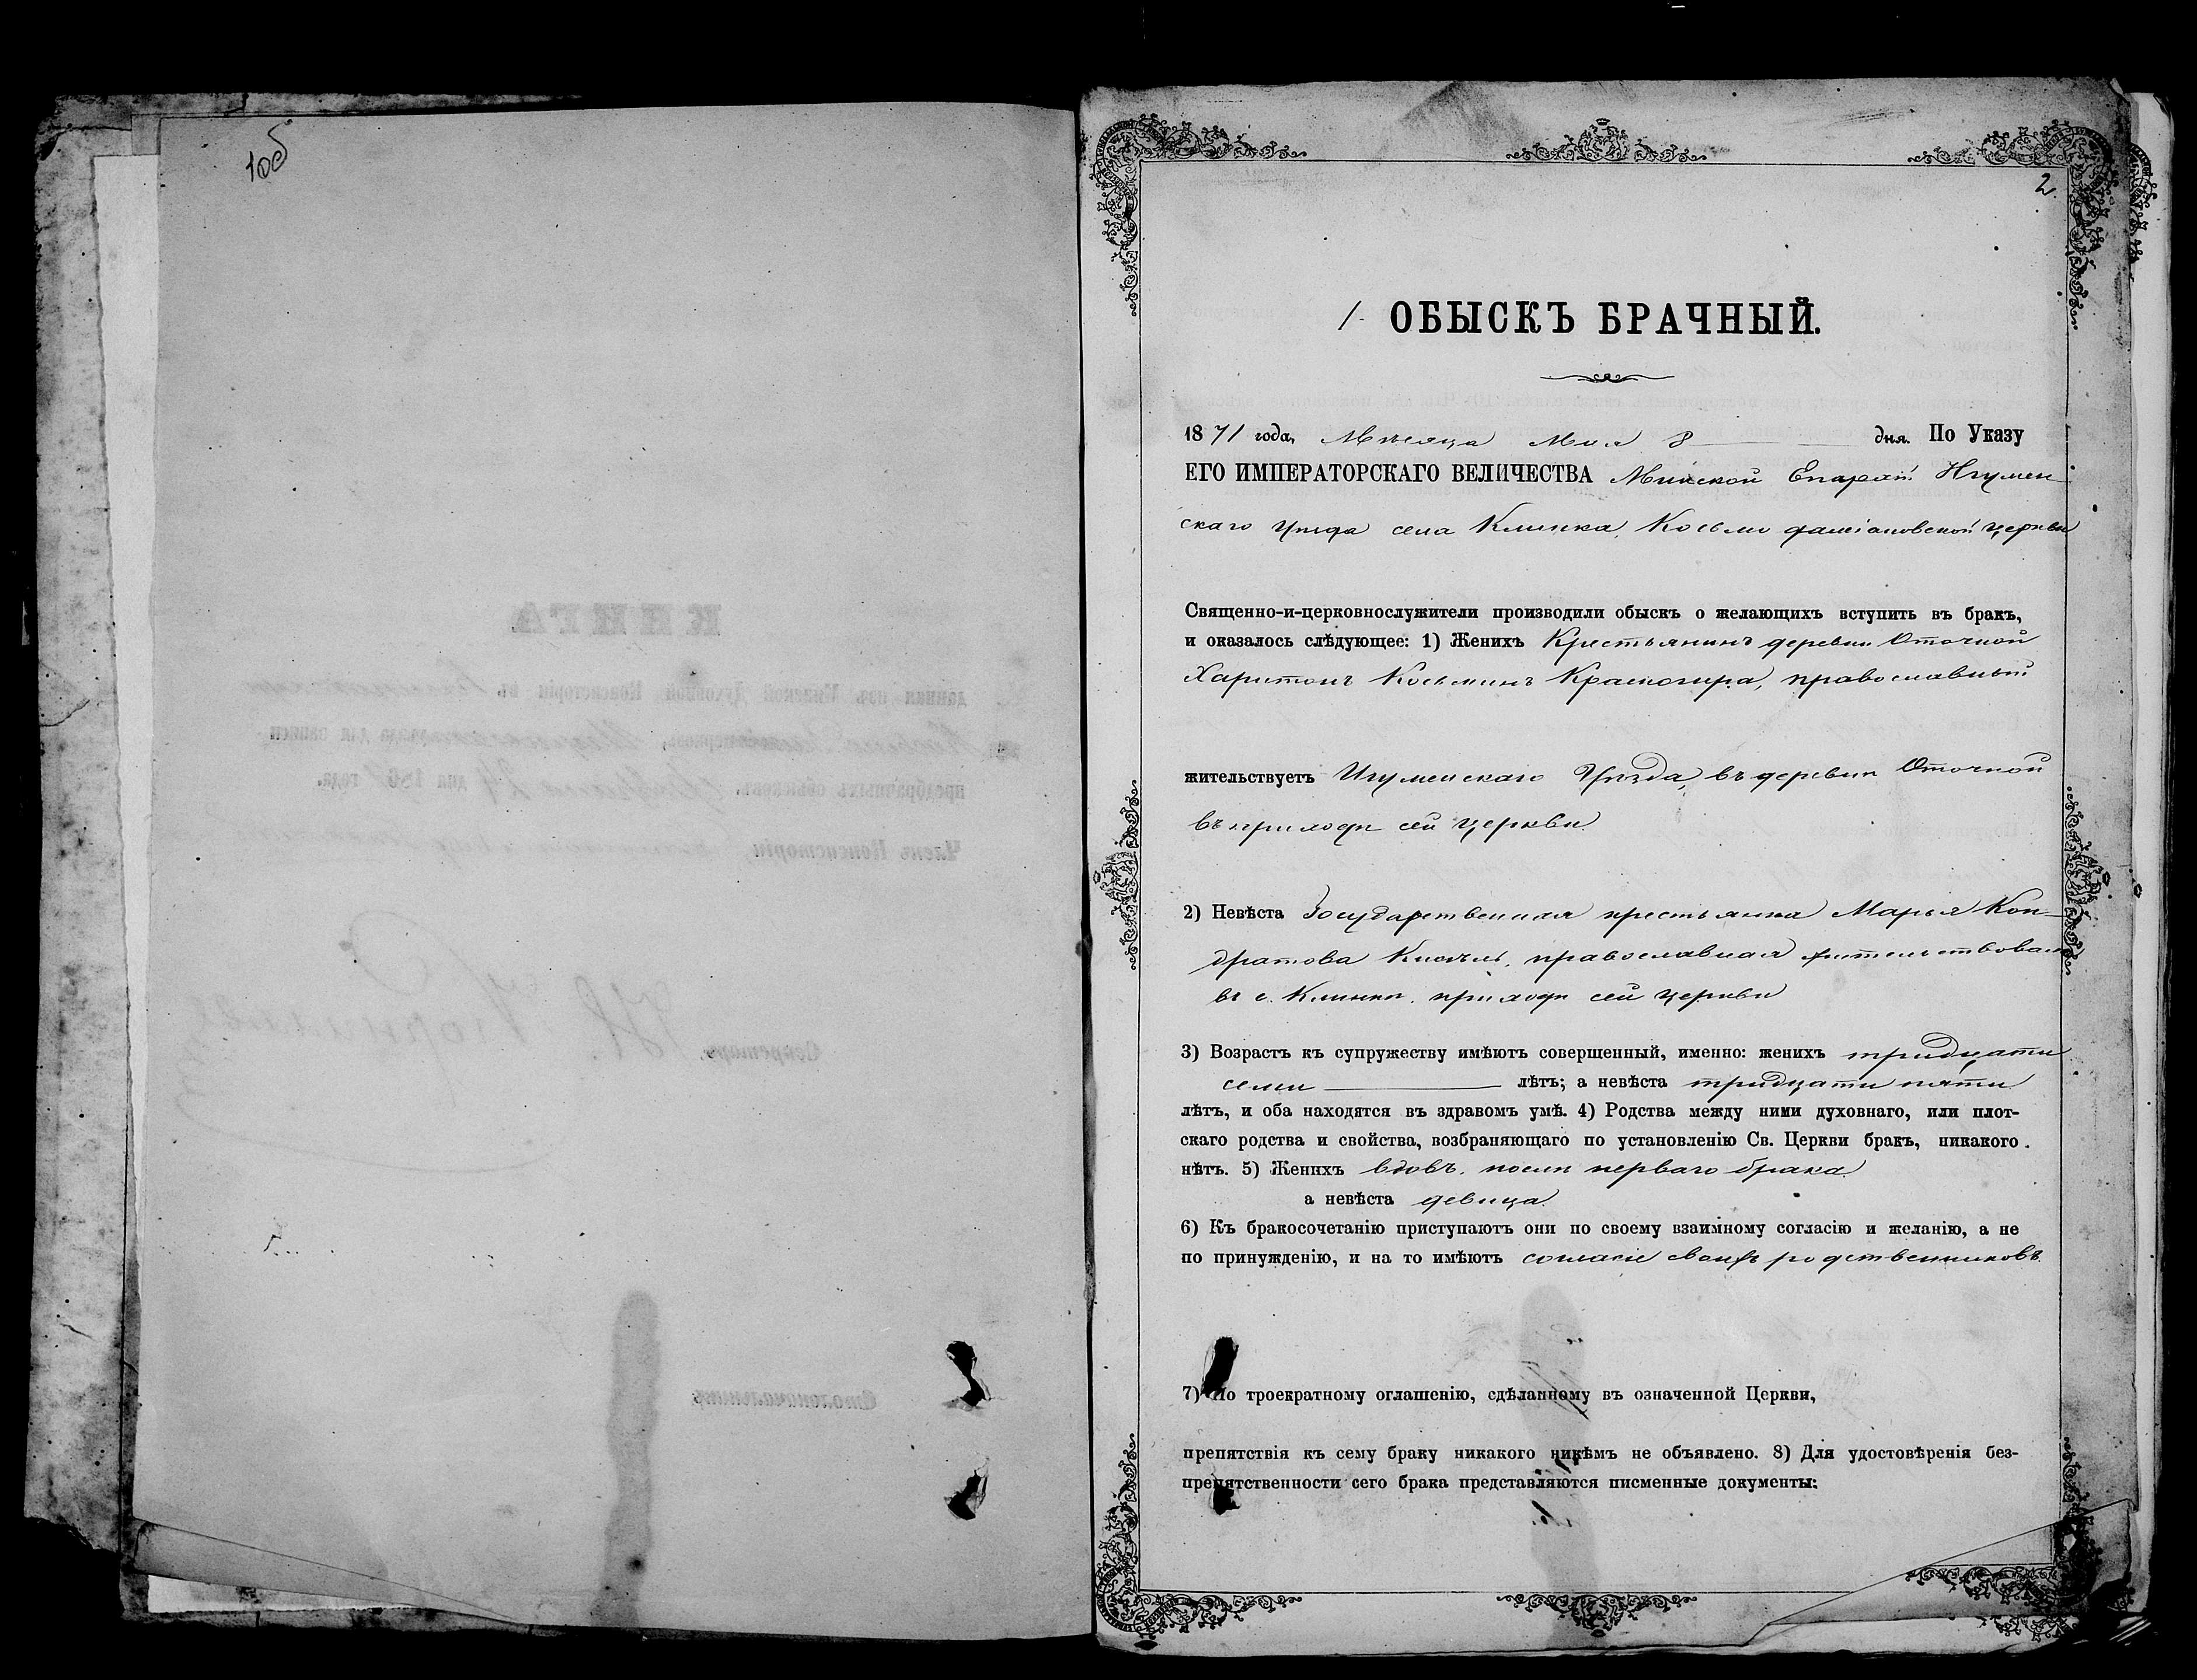 1об
2
1. ОБЫСКЪ БРАЧНЫЙ.
1871 года, Мѣсяца Мая 8 дня. По Указу
ЕГО ИМПЕРАТОРСКАГО ВЕЛИЧЕСТВА Минской Епархіи Игумен-
скаго уѣзда села Клинка, Косьмо даміановской церкви
Священно-и-церковнослужители производили обыскъ о желающихъ вступить въ бракъ,
и оказалось слѣдующее: 1) Женихъ Крестьянинъ деревни Оточной
Харитонъ Косьминъ Красногира, православный
жительствуетъ Игуменскаго Уѣзда, въ деревни Оточной
въ приходѣ сей церкви
2) Невѣста Государственная крестьянка Марья Кон-
дратова православная жительствовала
въ с. Клинкѣ, приходѣ сей церкви
3) Возрастъ къ супружеству имѣютъ совершенный, именно: женихъ тридцати
семи лѣтъ; а невѣста тридцати пяти
лѣтъ, и оба находятся въ здравомъ умѣ. 4) Родства между ними духовнаго, или плот-
скаго родства и свойства, возбраняющаго по установленію Св. Церкви бракъ, никакого
нѣтъ. 5) Женихъ вдовъ, послѣ перваго брака
а невѣста девица
6) Къ бракосочетанію приступаютъ они по своему взаимному согласію и желанію, а не
по принужденію, и на то имѣютъ согласіе своихъ родственниковъ
7) По троекратному оглашенію, сдѣланному въ означенной Церкви,
препятствія къ сему браку никакого никѣмъ не объявлено. 8) Для удостовѣренія без-
препятственности сего брака представляются писменные документы: